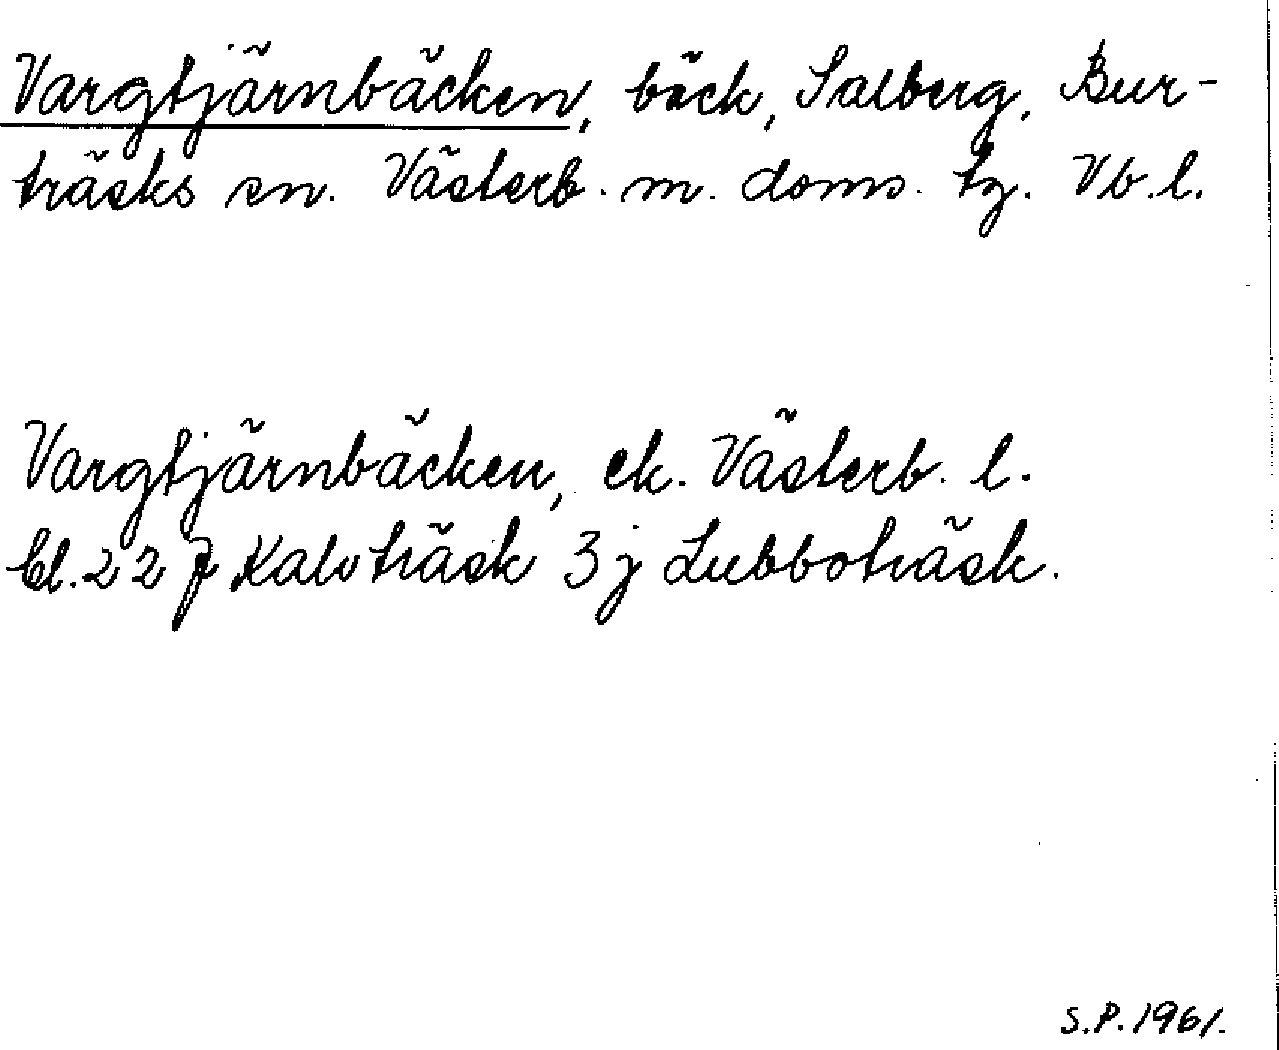 Vargtjärnbäcken, bäck, Salberg, Bur-
träsks sn. Västerb. m. doms. tg. Vb.l.
Vargtjärnbäcken, ek. Västerb. l.
bl. 22 j Kalvträsk 3 j Lubboträsk.
S.P. 1961.